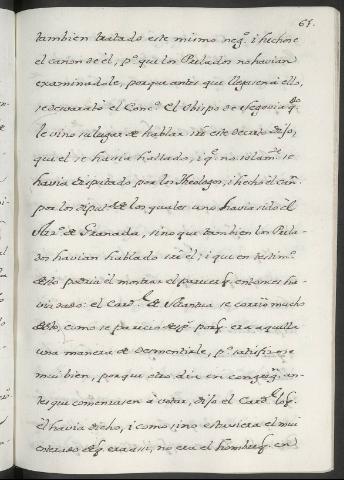 67.
tambien tratado este mismo neg.º i hechose
el canon de él, p.º que los Prelados no havian
examinadole, porque antes que llegasen a ello,
se desvarató el Conc.º El Obispo de Segovia q.do
le vino su lugar de hablar en este decreto dijo,
que el se havia hallado, i q.e no solam.te se
havia disputado por los Theologos, i hecho el can.
por los diput.dos de los quales uno havia sido el
Arz.º de Granada, sino que tambien los Prela-
dos havian hablado en él; i que en testim.º
desto podria él mostrar el parecer q. entonces ha-
via dado: el Card.l de Mantua se corrió mucho
desto, como se pareció desp.s porq. era aquella
una manera de desmentirle, p.º satisfizose
mui bien, porque otro dia en congreg.n an-
tes que comenzasen á votar, dijo el Card.l lo q.
él havia dicho, i como sino estuviera el mui
enterado de q. era assi, no era el hombre q. en